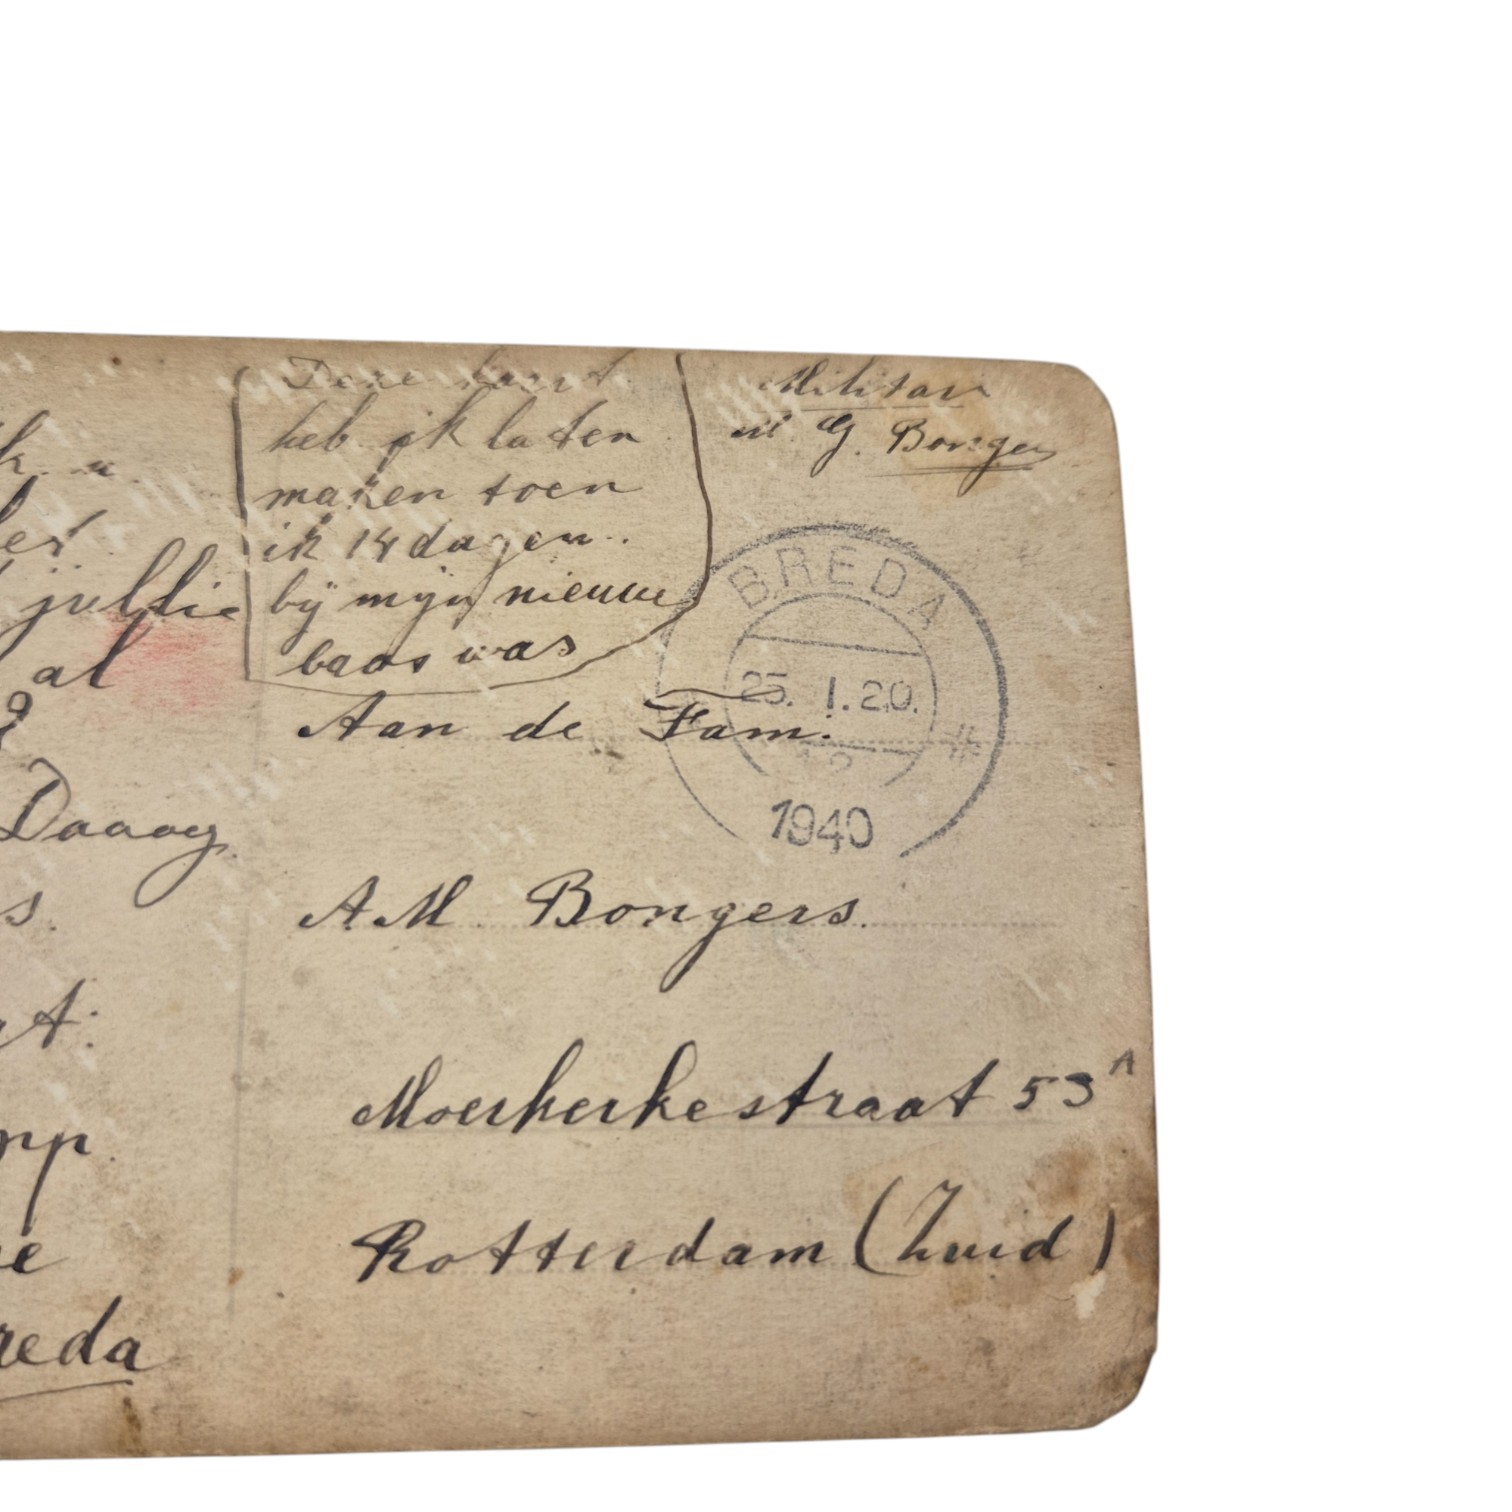 jullie
al
Daaag
s.
reda
Deze kaart
heb ik laten
maken toen
ik 14 dagen
bij mijn nieuwe
baas was
Militair
G. Bongers
BREDA
25. 1.20.
1940
Aan de Fam.
A M Bongers.
Moerkerkestraat 53 A
Rotterdam (Zuid)